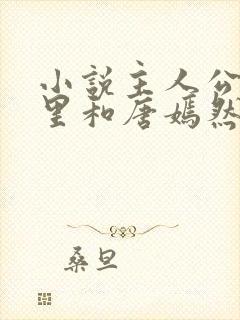 小说主人公
里和唐嫣然
桑旦